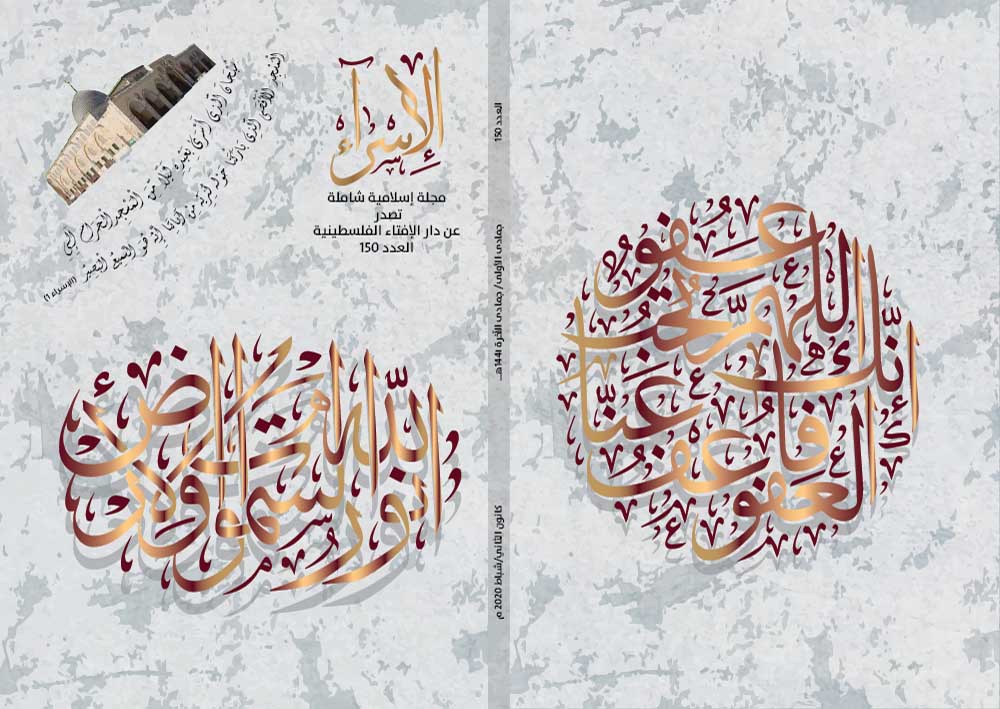 الإسراء
مجلة إسلامية شاملة
تصدر
عن دار الإفتاء الفلسطينية
العدد 150
سُبْحَانَ الَّذِي أَسْرَى بِعَبْدِهِ لَيْلًا مِنَ الْمَسْجِدِ الْحَرَامِ إِلَى
الْمَسْجِدِ الْأَقْصَى الَّذِي بَارَكْنَا حَوْلَهُ لِنُرِيَهُ مِنْ آيَاتِنَا إِنَّهُ هُوَ السَّمِيعُ الْبَصِيرُ (الإسراء 1)
الله نور السموات والأرض
العدد 150
جمادى الأولى/ جمادى الآخرة 1441هـ
كانون الثاني/شباط 2020 م
اللهم إنك عفو تحب العفو فاعف عنا